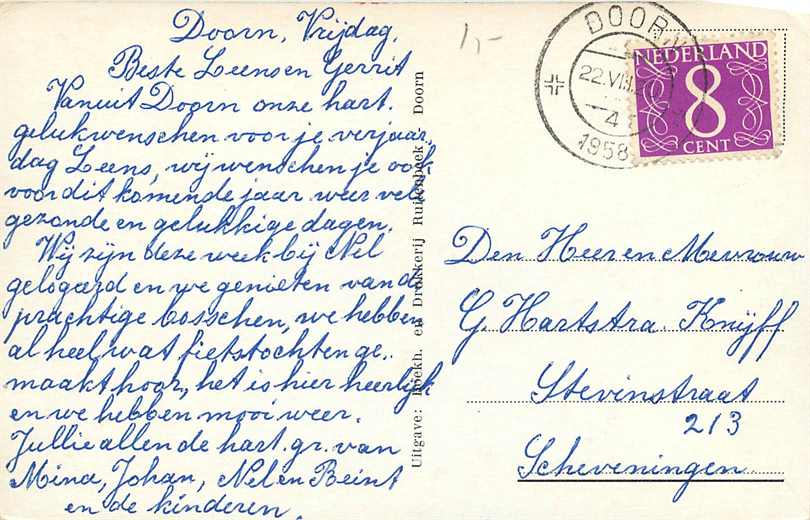 Doorn, Vrijdag,
Beste Leens en Gerrit
Vanuit Doorn onze hart.
gelukwenschen voor je verjaar.
dag Leens, wij wenschen je ook
voor dit komende jaar weer vele
gezonde en gelukkige dagen.
Wij zijn deze week bij Nel
gelogeerd en we genieten van de
prachtige bosschen, we hebben
al heel wat fietstochten ge.
maakt hoor, het is hier heerlijk
en we hebben mooi weer.
Jullie allen de hart. gr. van
Mina, Johan, Nel en Beint
en de kinderen.
1,-
Uitgave: Boekh. en Drukkerij Ruitenbeek Doorn
DOORN
22.VIII
4
1958
NEDERLAND
8
CENT
Den Heer en Mevrouw
G. Hartstra. Knijff
Stevinstraat
213
Scheveningen.